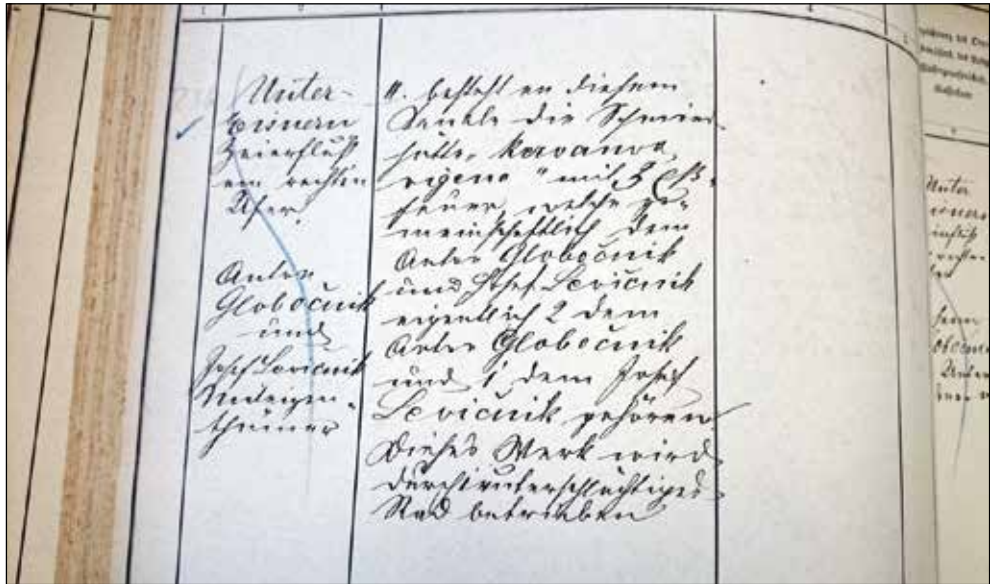 Unter-
Eisnern
Zeierfluß
am rechten
Ufer.
Anton
Globočnik
und
Josef Levičnik
Miteigen-
thümer
II. besteht an diesem
Kanale die Schmied-
hütte "Kovanva
vigene" mit 3 Eß-
feuer, welche ge-
meinschaftlich dem
Anton Globočnik
und Josef Levičnik
eigentlich 2 dem
Anton Globočnik
und 1 dem Josef
Levičnik gehören
Dieses Werk wird
durch unterschlächtiges
Rad betrieben
Unter